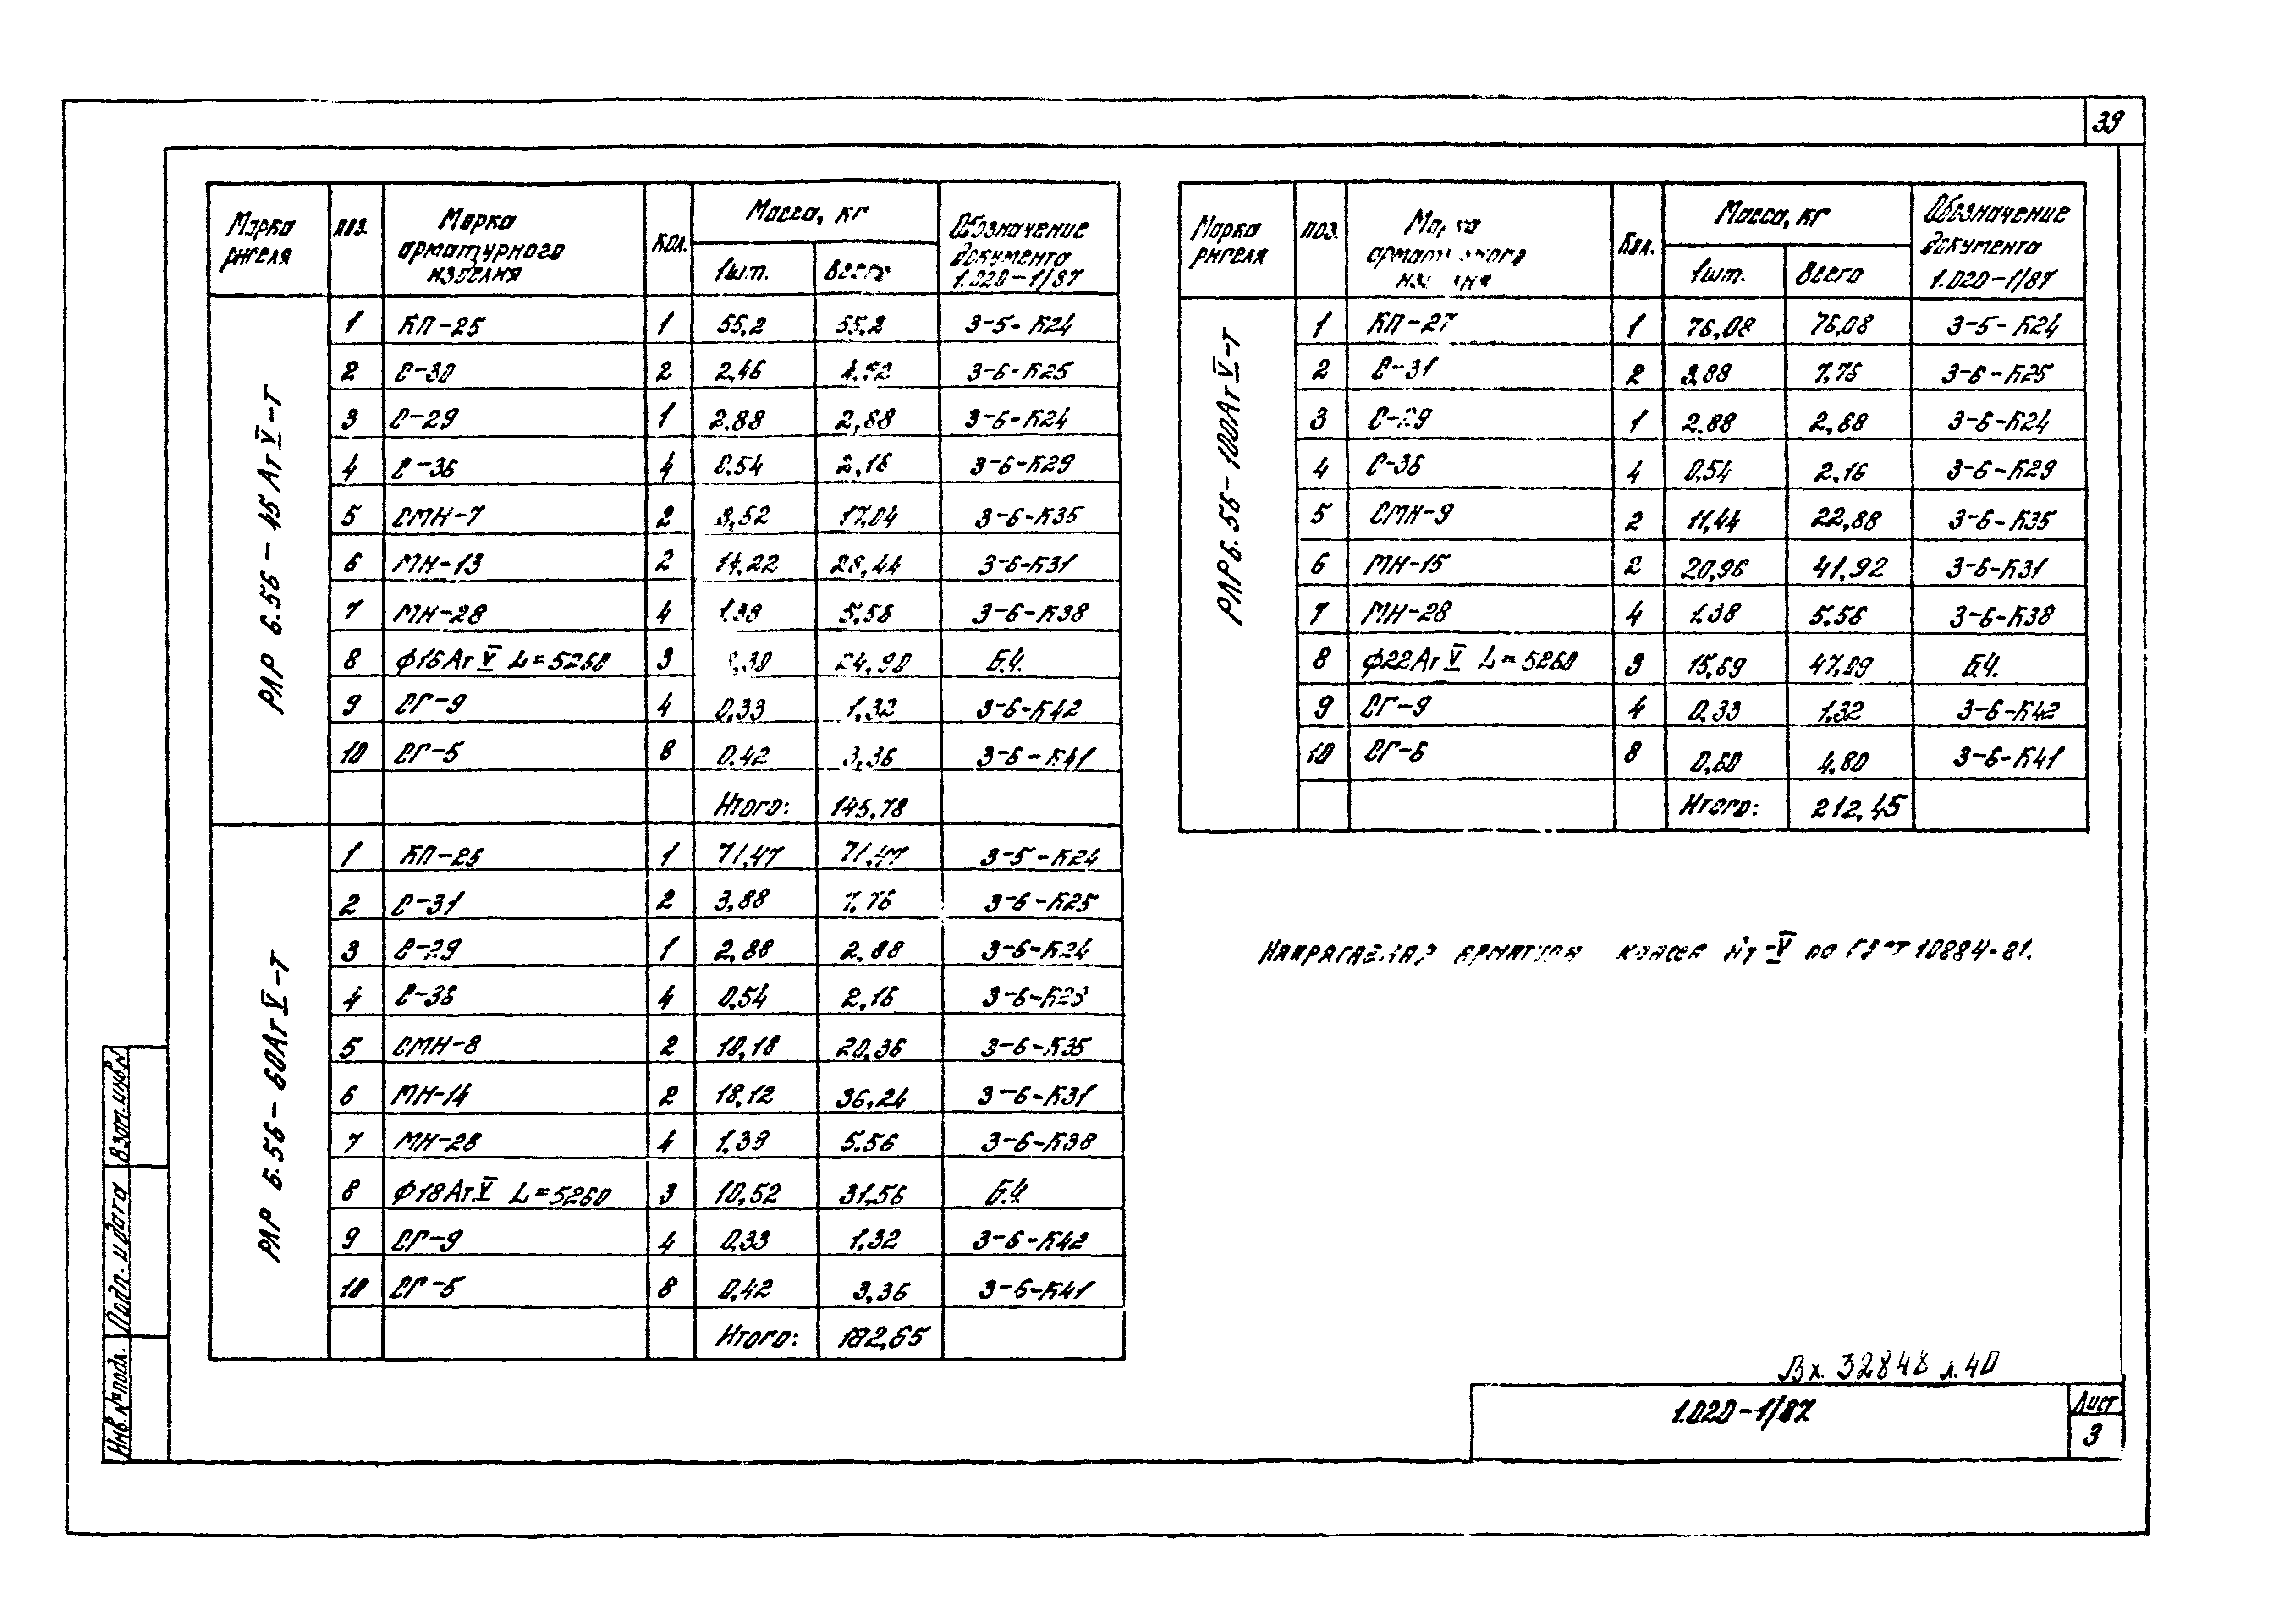 39
Марка ригеля | поз. | Марка арматурного изделия | кол. | Масса, кг 1шт. | Всего | Обозначение документа 1.020-1/87
РЛР 6.56-45АтV-т
1 КП-25 1 55,2 55,2 3-5-К24
2 С-30 2 2,46 4,92 3-6-К25
3 С-29 1 2.88 2,88 3-6-К24
4 С-36 4 0.54 2,16 3-6-К29
5 СМН-7 2 8,52 17,04 3-6-К35
6 МН-13 2 14,22 28,44 3-6-К31
7 МН-28 4 1,39 5,56 3-6-К38
8 ф16АтV L=5260 3 ,30 24,90 Б.Ч.
9 СГ-9 4 0,33 1,32 3-6-К42
10 СГ-5 8 0.42 3,36 3-6-К41
Итого: 145,78
РЛР 6.56-60АтV-т
1 КП-26 1 71,47 71,47 3-5-К24
2 С-31 2 3,88 7,76 3-6-К25
3 С-29 1 2,88 2,88 3-6-К24
4 С-36 4 0,54 2,16 3-6-К29
5 СМН-8 2 10,18 20,36 3-6-К35
6 МН-14 2 18,12 36,24 3-6-К31
7 МН-28 4 1,39 5.56 3-6-К38
8 ф18АтV L=5260 3 10,52 31,56 Б.Ч.
9 СГ-9 4 0,33 1,32 3-6-К42
10 СГ-5 8 0,42 3,36 3-6-К41
Итого: 182,65
Марка ригеля | поз. | Марка арматурного изделия | Кол. | Масса, кг 1шт. | Всего | Обозначение документа 1.020-1/87
РЛР 6.56-100АтV-т
1 КП-27 1 76,08 76,08 3-5-К24
2 С-31 2 3,88 7,76 3-6-К25
3 С-29 1 2,88 2,88 3-6-К24
4 С-36 4 0,54 2.16 3-6-К29
5 СМН-9 2 11,44 22,88 3-6-К35
6 МН-15 2 20,96 41,92 3-6-К31
7 МН-28 4 1.38 5.56 3-6-К38
8 ф22АтV L=5260 3 15,69 47,09 Б.Ч.
9 СГ-9 4 0,33 1,32 3-6-К42
10 СГ-6 8 0,60 4,80 3-6-К41
Итого: 212,45
Напрягаемая арматура класса Ат-V по ГОСТ 10884-81.
Взат. инв. N
Подп. и дата
Инв. № подл.
Вх. 32848 л.40
1.020-1/87
Лист
3